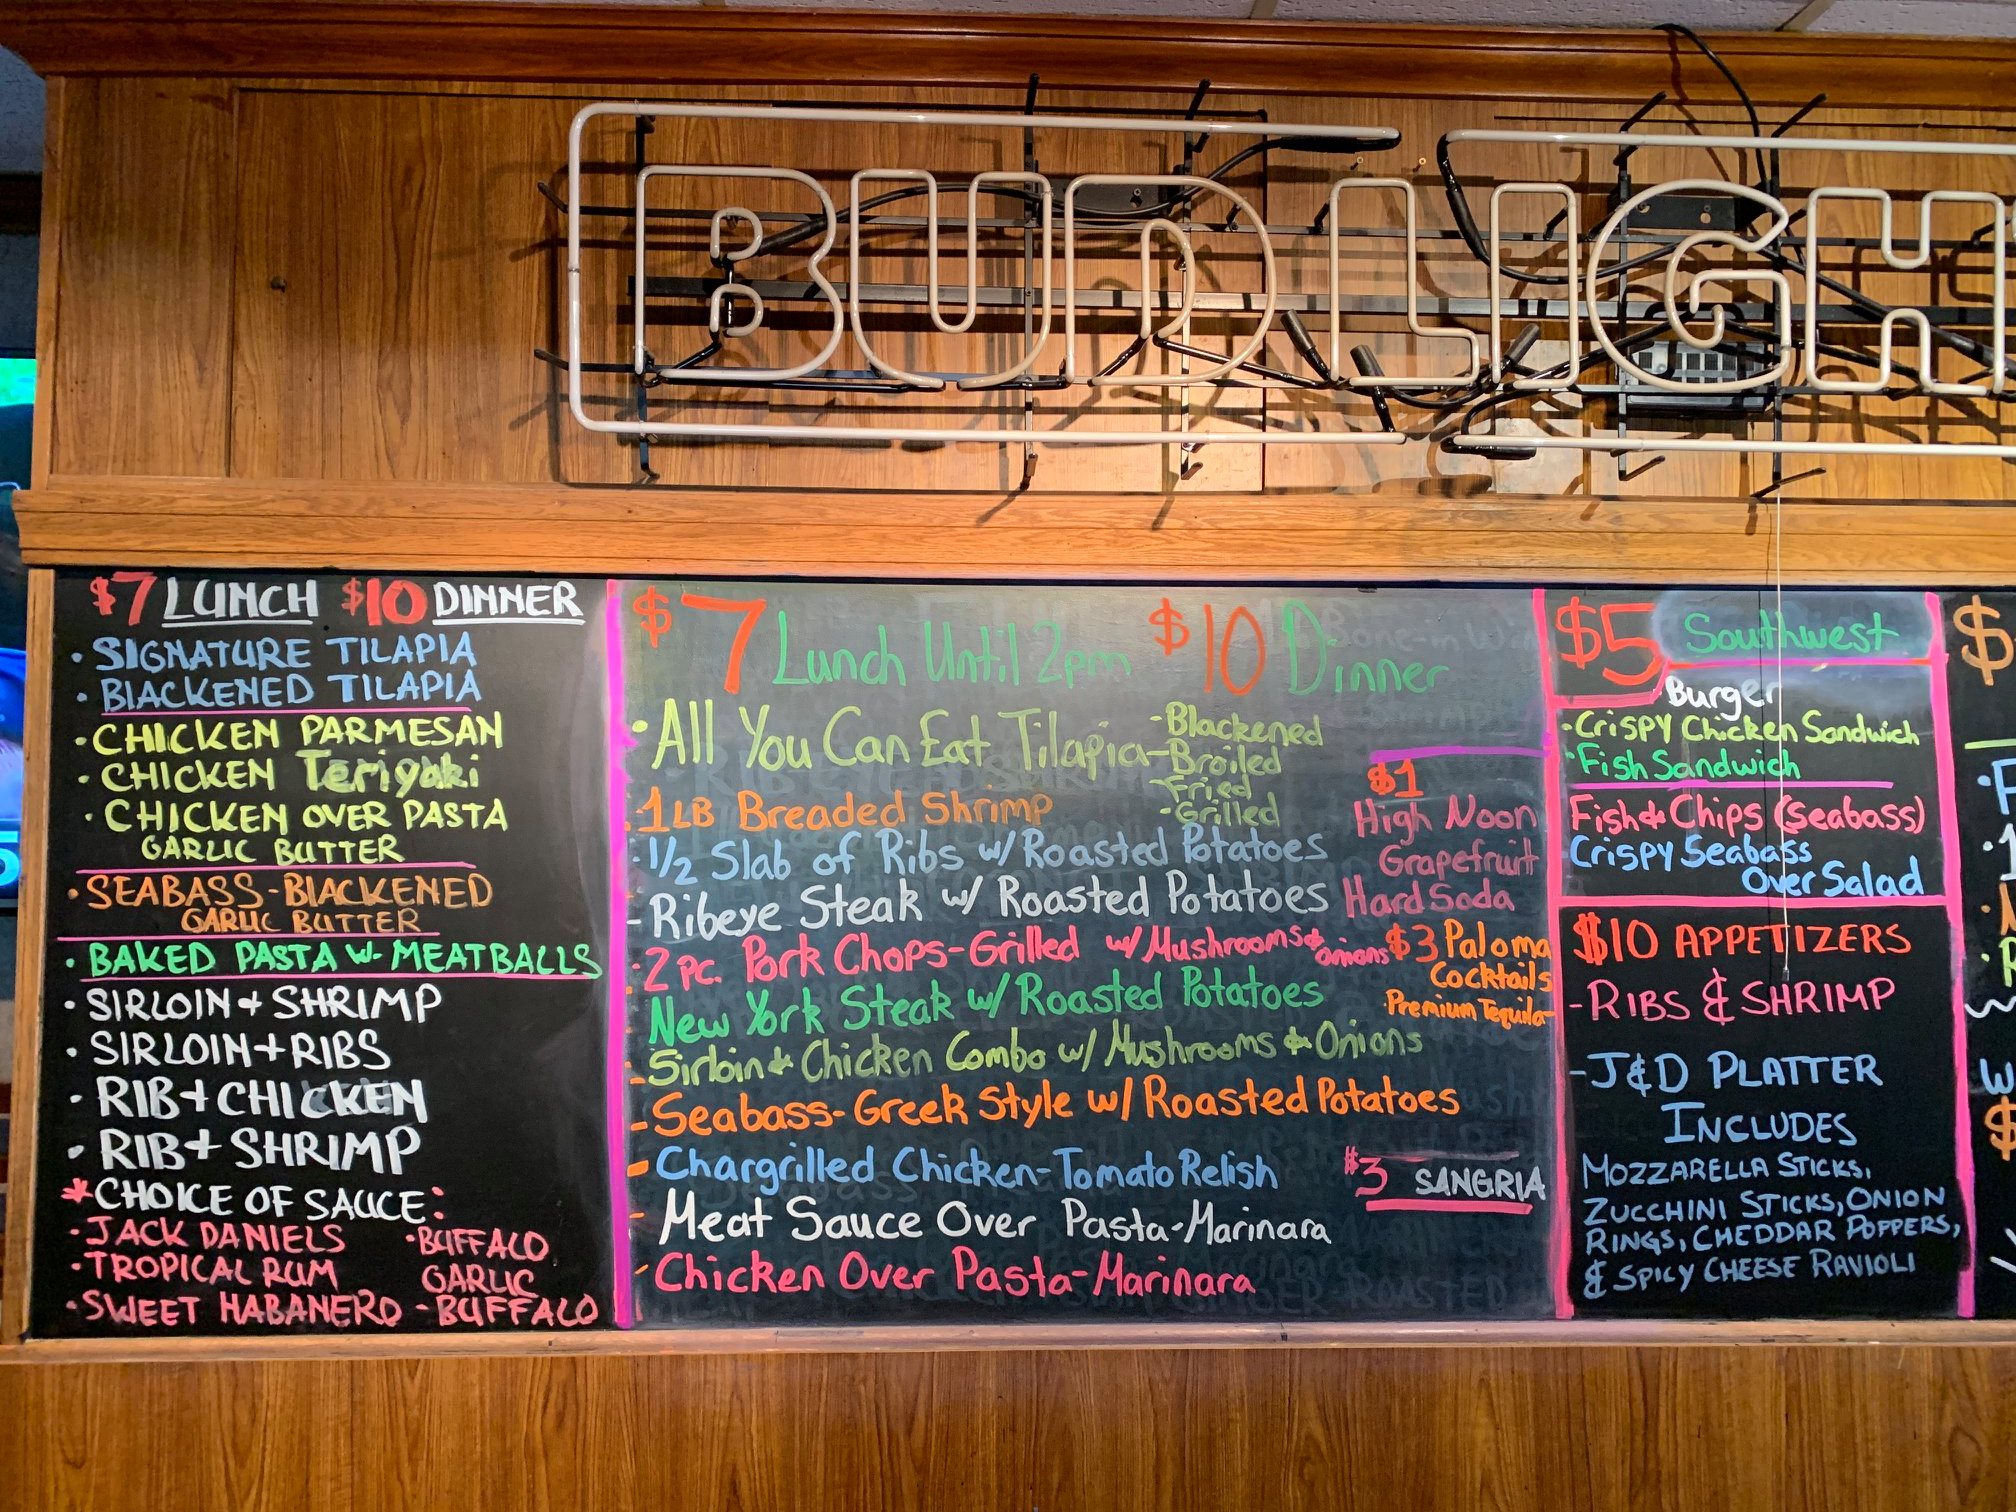 BUD LIGH
$7 LUNCH $10 DINNER
· SIGNATURE TILAPIA
· BLACKENED TILAPIA
· CHICKEN PARMESAN
· CHICKEN Teriyaki
· CHICKEN OVER PASTA
GARLIC BUTTER
· SEABASS-BLACKENED
GARLIC BUTTER
· BAKED PASTA W- MEATBALLS
· SIRLOIN + SHRIMP
· SIRLOIN + RIBS
· RIB + CHICKEN
· RIB + SHRIMP
* CHOICE OF SAUCE:
· JACK DANIELS · BUFFALO
· TROPICAL RUM GARLIC
· SWEET HABANERO - BUFFALO
$7 Lunch Until 2pm $10 Dinner
· All You Can Eat Tilapia
- Blackened
- Broiled
- Fried
- Grilled
· 1 LB Breaded Shrimp
· 1/2 Slab of Ribs w/ Roasted Potatoes
- Ribeye Steak w/ Roasted Potatoes
· 2 pc. Pork Chops-Grilled w/ Mushrooms & onions
- New York Steak w/ Roasted Potatoes
- Sirloin & Chicken Combo w/ Mushrooms & Onions
- Seabass- Greek Style w/ Roasted Potatoes
- Chargrilled Chicken-Tomato Relish
- Meat Sauce Over Pasta-Marinara
- Chicken Over Pasta-Marinara
$1
High Noon
Grapefruit
Hard Soda
$3 Paloma
Cocktails
Premium Tequila
$3 SANGRIA
$5 Southwest
Burger
· Crispy Chicken Sandwich
· Fish Sandwich
Fish & Chips (seabass)
· Crispy Seabass
Over Salad
$10 APPETIZERS
- RIBS & SHRIMP
- J&D PLATTER
INCLUDES
MOZZARELLA STICKS,
ZUCCHINI STICKS, ONION
RINGS, CHEDDAR POPPERS,
& SPICY CHEESE RAVIOLI